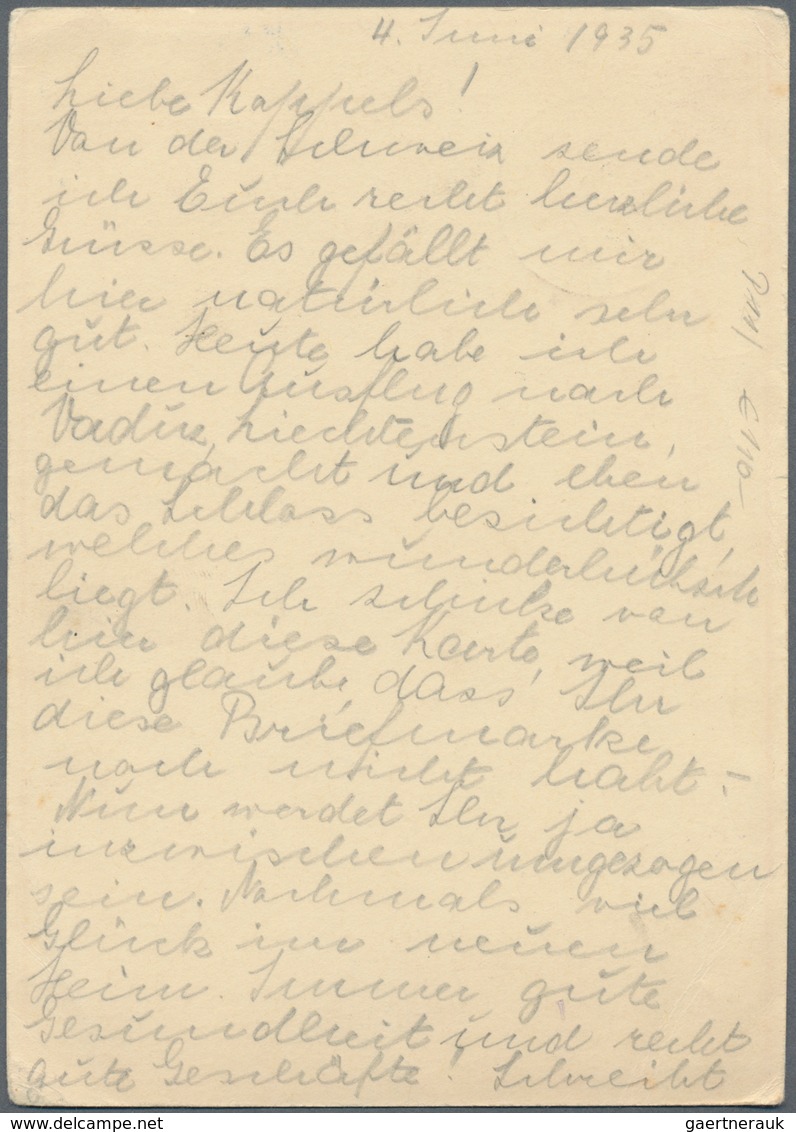 4. Juni 1935
Liebe Kappels!
Von der Schweiz sende
ich Euch recht herzliche
Grüsse. Es gefällt mir
hier natürlich sehr
gut. Heute habe ich
einen Ausflug nach
Vaduz, Liechtenstein,
gemacht und eben
das Schloss besichtigt,
welches wunderhübsch
liegt. Ich schicke von
hier diese Karte, weil
ich glaube, dass Ihr
diese Briefmarke
noch nicht habt. –
Nun werdet Ihr ja
inzwischen umgezogen
sein. Nochmals viel
Glück im neuen
Heim. Immer gute
Gesundheit und recht
gute Geschäfte! Schreibt
gaertnerauk // delcampe.net